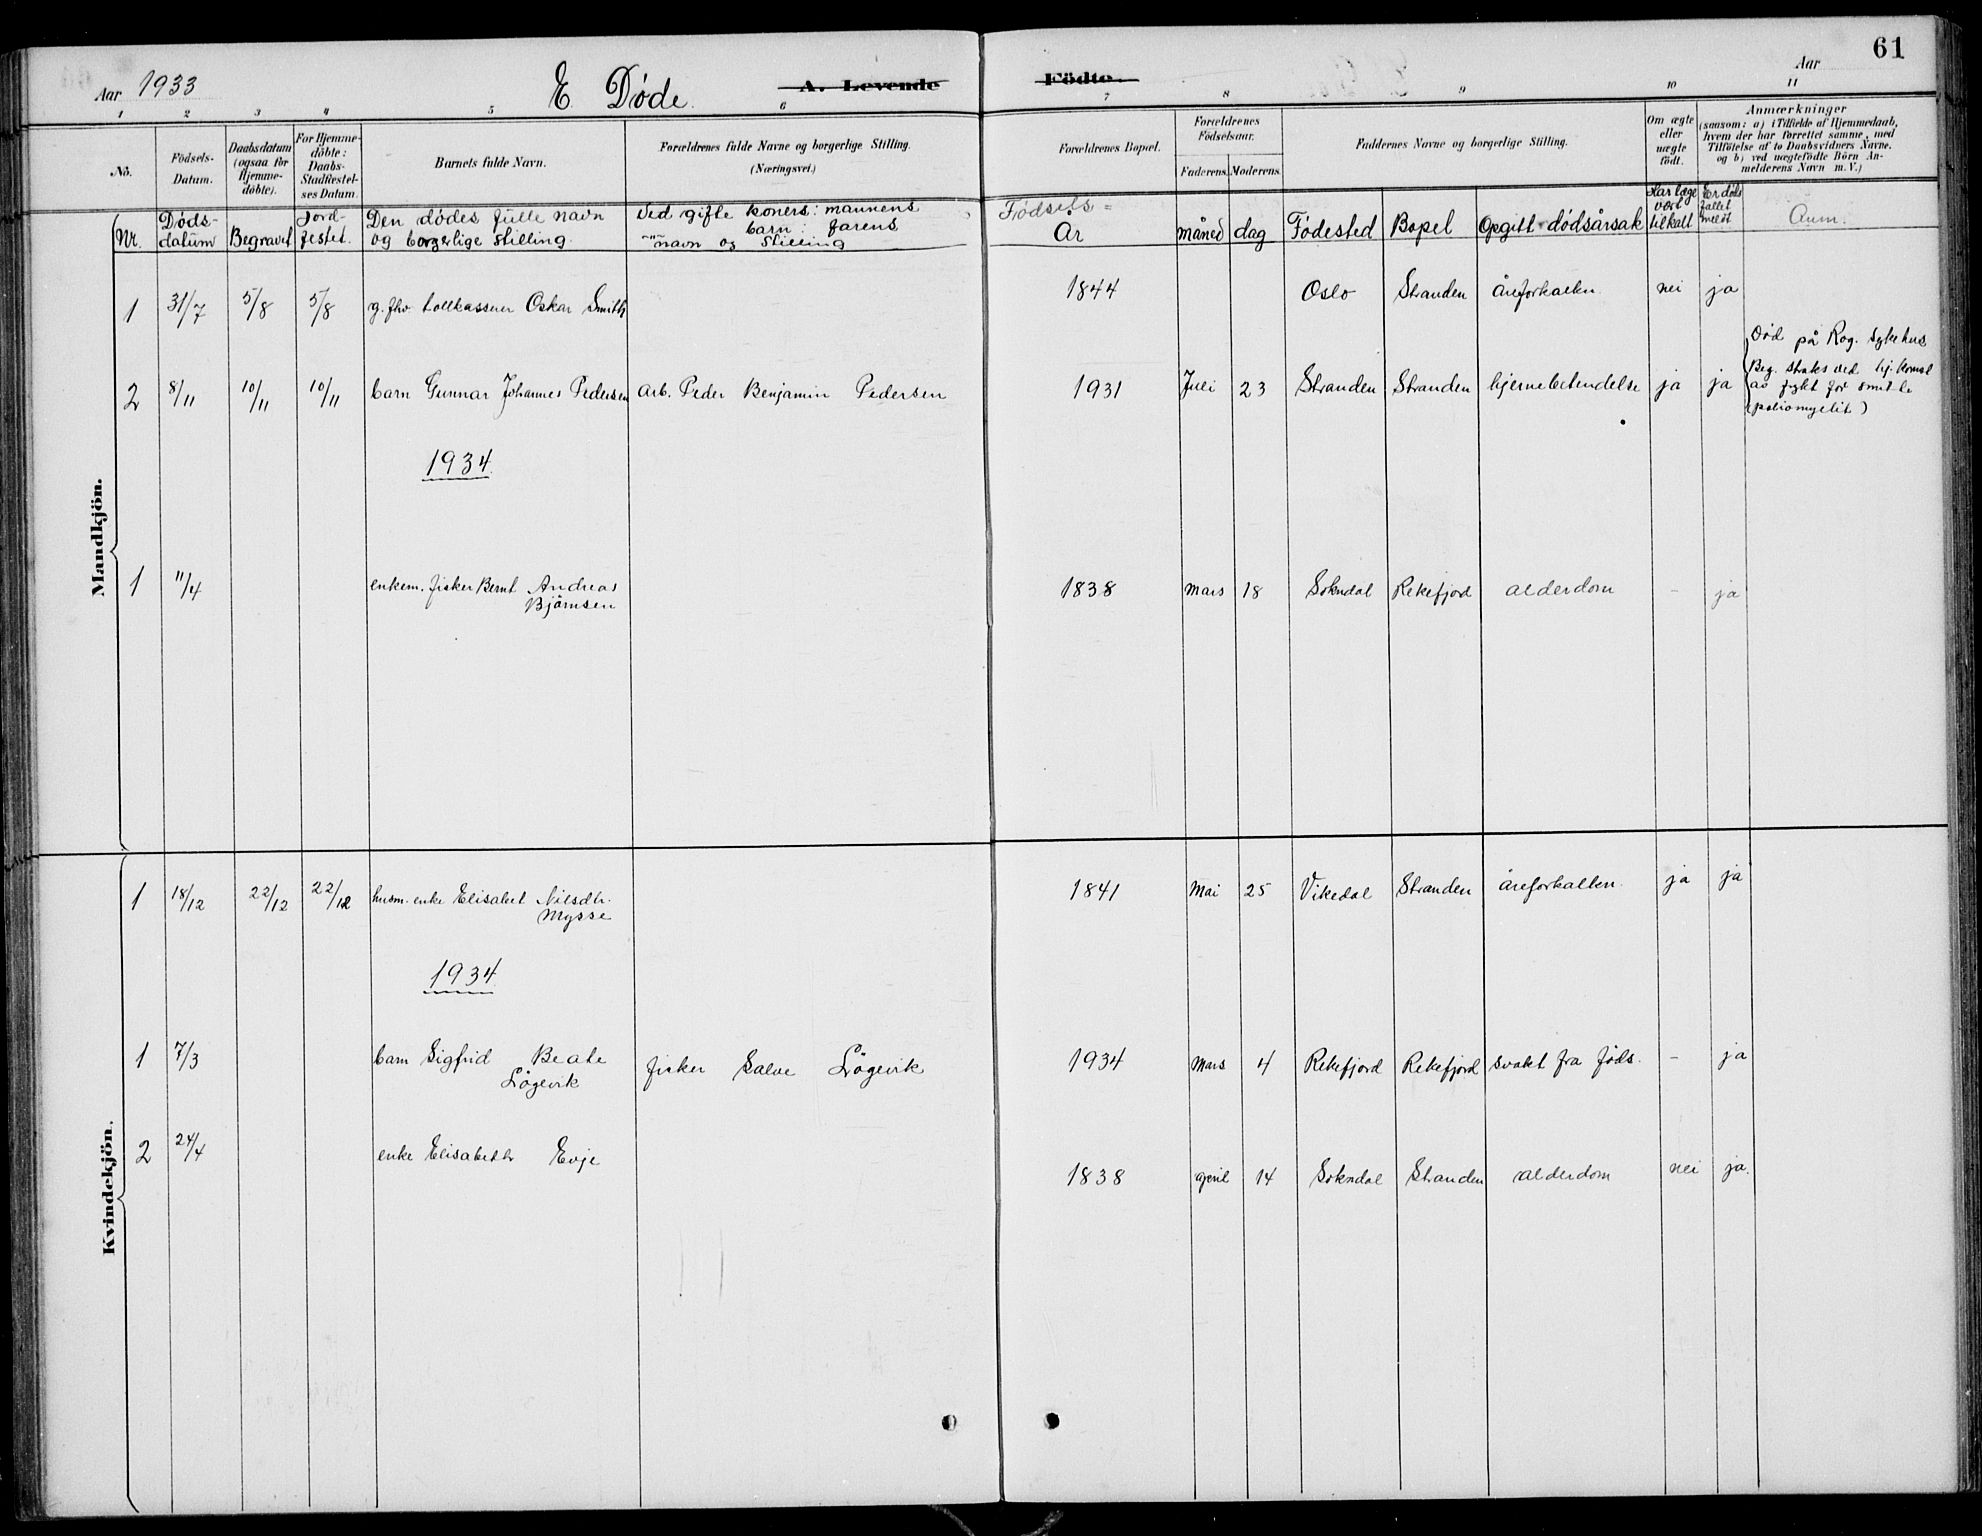 Aar 1933
E. Døde.
A. Levende Födte.
Aar
61
1 2 3 4 5 6 7 8 9 10 11
No.
Födsels-Datum.
Daabsdatum (ogsaa for Hjemme-döbte).
For Hjemme-döbte: Daabs-Stadfestel-ses Datum.
Barnets fulde Navn.
Forældrenes fulde Navne og borgerlige Stilling.
(Næringsvei.)
Forældrenes Bopæl.
Forældrenes Födselsaar.
Faderens. Moderens.
Faddernes Navne og borgerlige Stilling.
Om ægte eller uægte födt.
Anmærkninger
(saasom: a) i Tilfælde af Hjemmedaab,
hvem der har forrettet samme, med
Tilföielse af to Daabsvidners Navne.
og b) ved uægtefödte Börn An-
melderens Navn m. V.)
Nr.
Døds-datum
Begravet
Jord-festet.
Den dødes fulle navn
og borgerlige stilling.
Ved gifte koners: mannens
" barn: farens
navn og stilling
Fødsels=
År
måned
dag
Fødested
Bopel
Opgitt dødsårsak
Har læge vært tilkalt
Er døds fallet meldt
Anm.
Mandkjön.
1 31/7 5/8 5/8 g. fhv. tollkasserer Oskar Smith 1844 Oslo Stranden åreforkalkn. nei ja
2 8/11 10/11 10/11 barn Gunnar Johannes Pedersen arb. Peder Benjamin Pedersen 1931 Juli 23 Stranden Stranden hjernebetendelse ja ja
Død på Rog. sykehus
Beg. straks ved hj.komst
av frykt for smitte
(poliomyelit)
1934.
1 11/4 enkem. fisker Bernt Andreas
Bjørnsen 1838 Mars 18 Sokndal Rekefjord alderdom - ja
Kvindekjön.
1 18/12 22/12 22/12 husm. enke Elisabet Nilsdtr.
Mysse 1841 Mai 25 Vikedal Stranden åreforkalkn. ja ja
1934
1 7/3 barn Sigfrid Beate
Løgevik fisker Salve Løgevik 1934 Mars 4 Rekefjord Rekefjord svakt fra føds. - ja
2 24/4 enke Elisabeth Evje 1838 april 14 Sokndal Stranden alderdom nei ja.